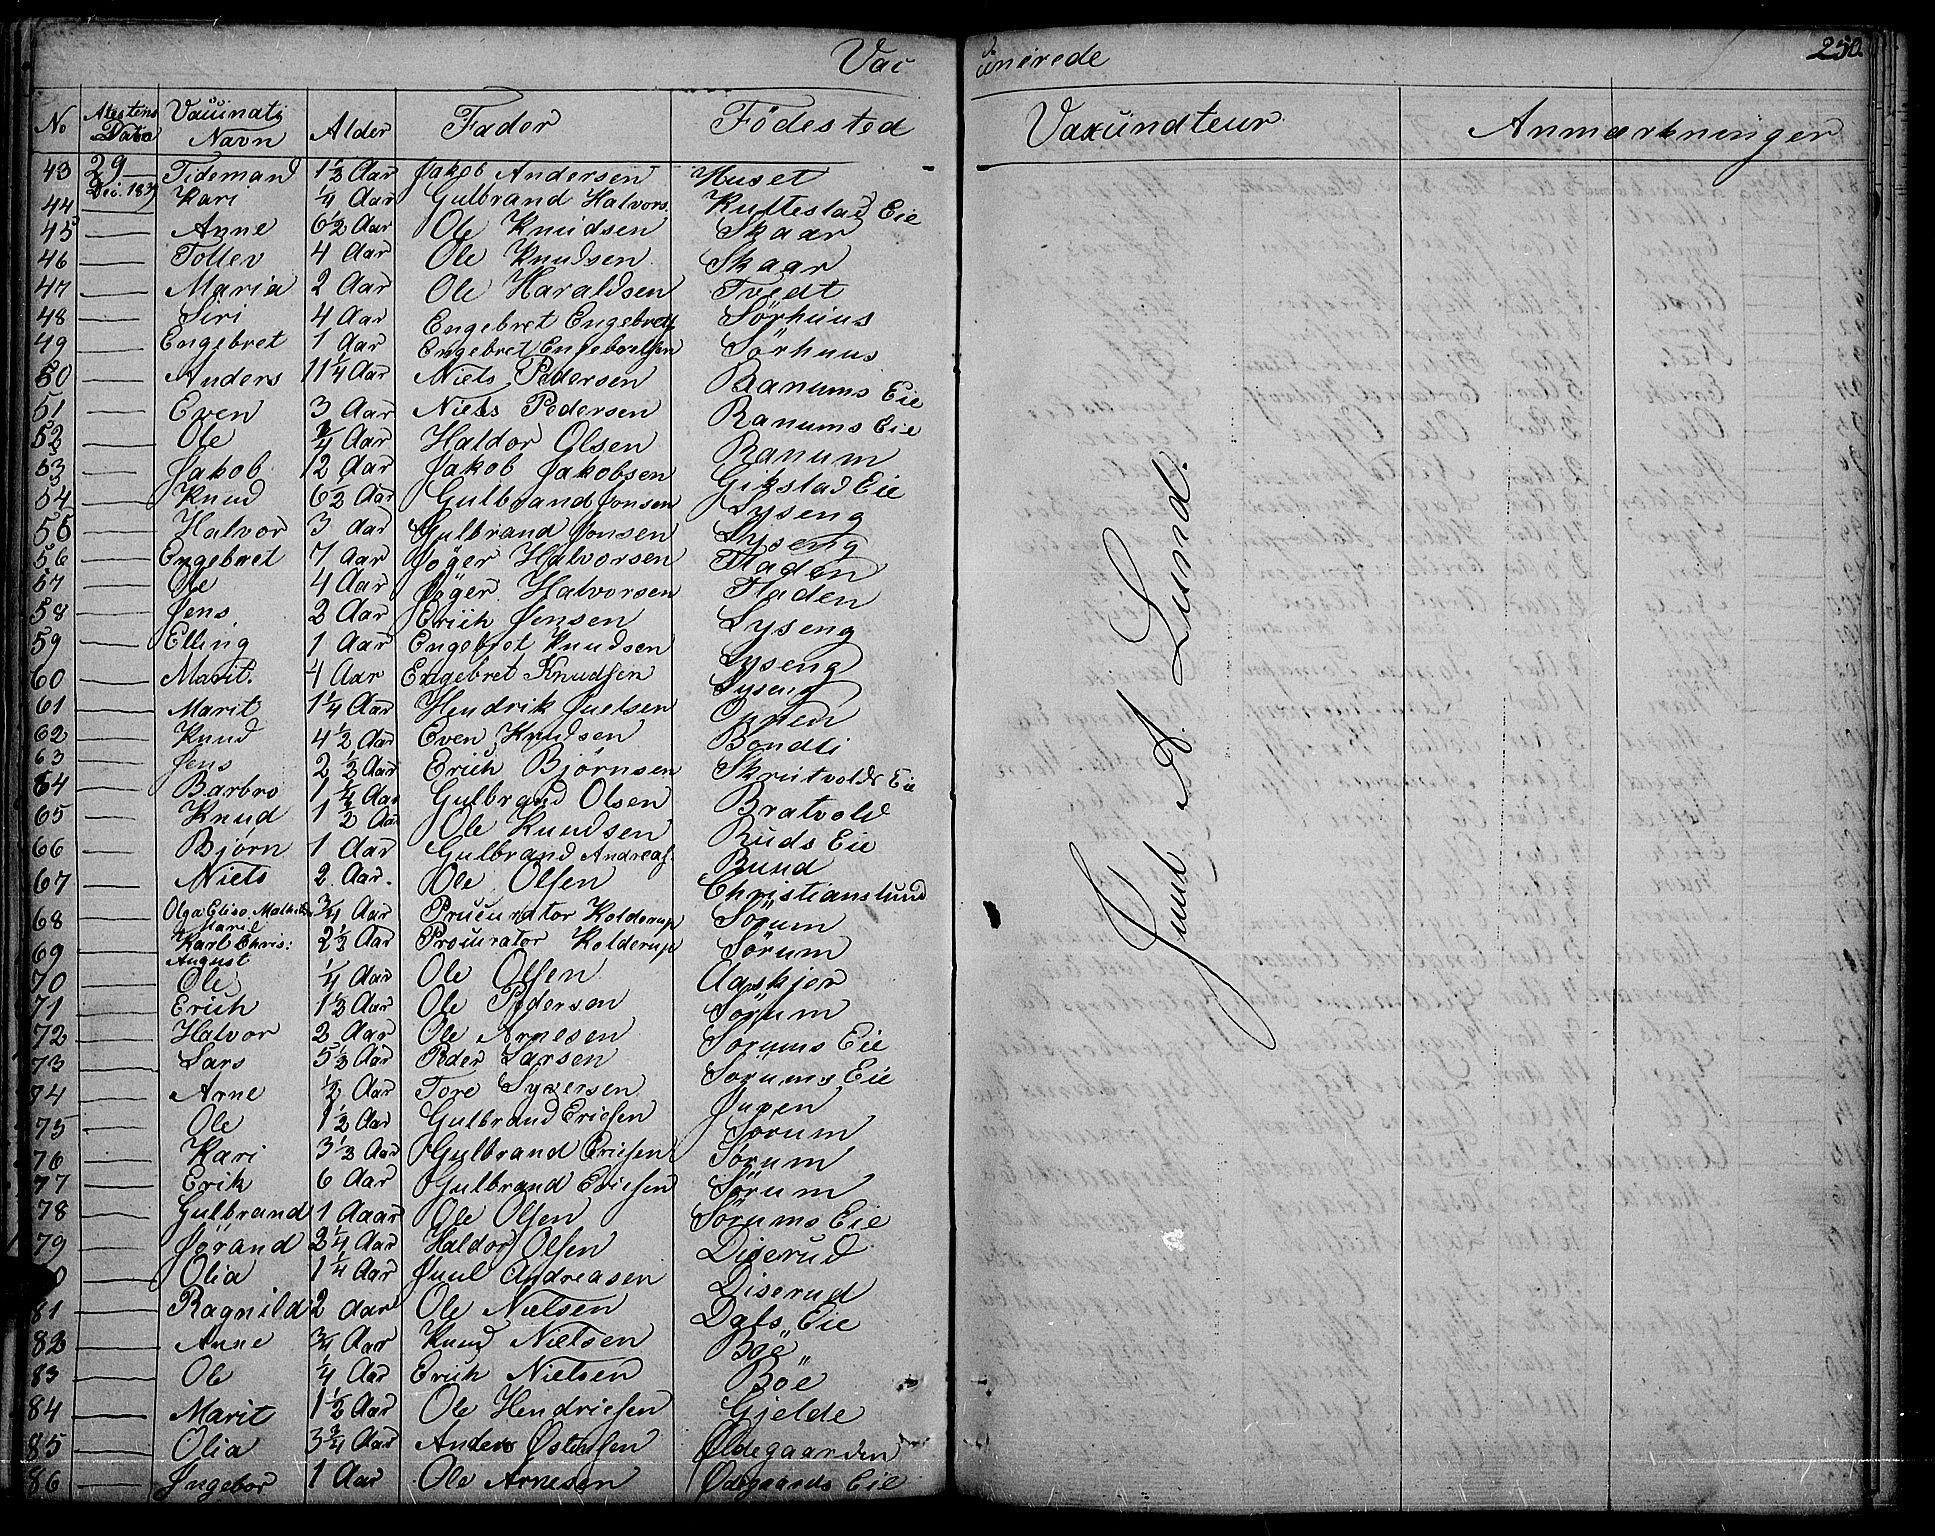 Vac cinerede 250.
No Atestens Data Vaccinati Navn Alder Fader Födested Vaxündteur Anmærkninger
43 29 Dec. 1839 Tideman 1 1/2 Aar Jakob Andersen Huset
44 — Kari 1/4 Aar Gulbrand Halvors. Kuttestad Eie
45 — Anne 6 1/2 Aar Ole Knudsen Skaar
46 — Tollev 4 Aar Ole Knudsen Skaar
47 — Maria 2 Aar Ole Haraldsen Tvedt
48 — Siri 4 Aar Engebret Engebrets Sörhuus
49 — Engebret 1 Aar Engebret Engebretsen Sörhuus
50 — Anders 11 1/4 Aar Niels Pedersen Ranums Eie
51 — Even 3 Aar Niels Pedersen Ranums Eie
52 — Ole 3/4 Aar Haldor Olsen Ranum
53 — Jakob 12 Aar Jakob Jakobsen Gikstad Eie
54 — Knud 6 1/2 Aar Gulbrand Jonsen Lyseng
55 — Halvor 3 Aar Gulbrand Jonsen Lyseng
56 — Engebret 7 Aar Jöger Halvorsen Fladen
57 — Ole 4 Aar Jöger Halvorsen Fladen
58 — Jens 2 Aar Erich Jensen Lyseng
59 — Elling 1 Aar Engebret Knudsen Lyseng
60 — Marit. 4 Aar Engebret Knudsen Lyseng
61 — Marit 1 1/4 Aar Hendrik Juelsen Oppen
62 — Knud 4 1/2 Aar Even Knudsen Bondli
63 — Jens 2 1/2 Aar Erich Bjørnsen Skrutvolds Eie
64 — Barbro 1 1/4 Aar Gulbrand Olsen Bratvold
65 — Knud 1 1/2 Aar Ole Knudsen Ruds Eie
66 — Bjørn 1 Aar Gulbrand Andreas. Bund
67 — Niels 2 Aar. Ole Olsen Christianslund
68 — Olga Elise Mathilde Marie 3/4 Aar Prucurator Kolderup Sörum
69 — Karl Chris: August 2 1/2 Aar Procurator Kolderup Sörum
70 — Ole 1/4 Aar Ole Olsen Aaskjer
71 — Erich 1 1/2 Aar Ole Pedersen Sörum
72 — Halvor 2 Aar Ole Arnesen Sörums Eie
73 — Lars 5 1/2 Aar Peder Larsen Sorums Eie
74 — Arne 1/2 Aar Tore Syversen Juven
75 — Ole 1 1/2 Aar Gulbrand Ericsen Sorum
76 — Kari 3 1/2 Aar Gulbrand Ericsen Sorum
77 — Erik 6 Aar Gulbrand Ericsen Sörum
78 — Gulbrand 1 Aaar Ole Olsen Sörums Eie
79 — Jörand 2 1/4 Aar Haldor Olsen Diserud
— Olia 1 1/4 Aar Juul Andreasen Diserud
81 — Ragnild 2 Aar Ole Nielsen Dals Eie
82 — Anne 3/4 Aar Knud Nielsen Böe
83 — Ole 1/4 Aar Erich Nielsen Böe
84 — Marit 1 1/2 Aar Ole Hendricsen Gjelde
85 — Olia 3 3/4 Aar Anders Østensen Øldegaarden
86 — Ingebor 1 Aar Ole Arnesen Ødegaards Eie
Juul A. Lund.